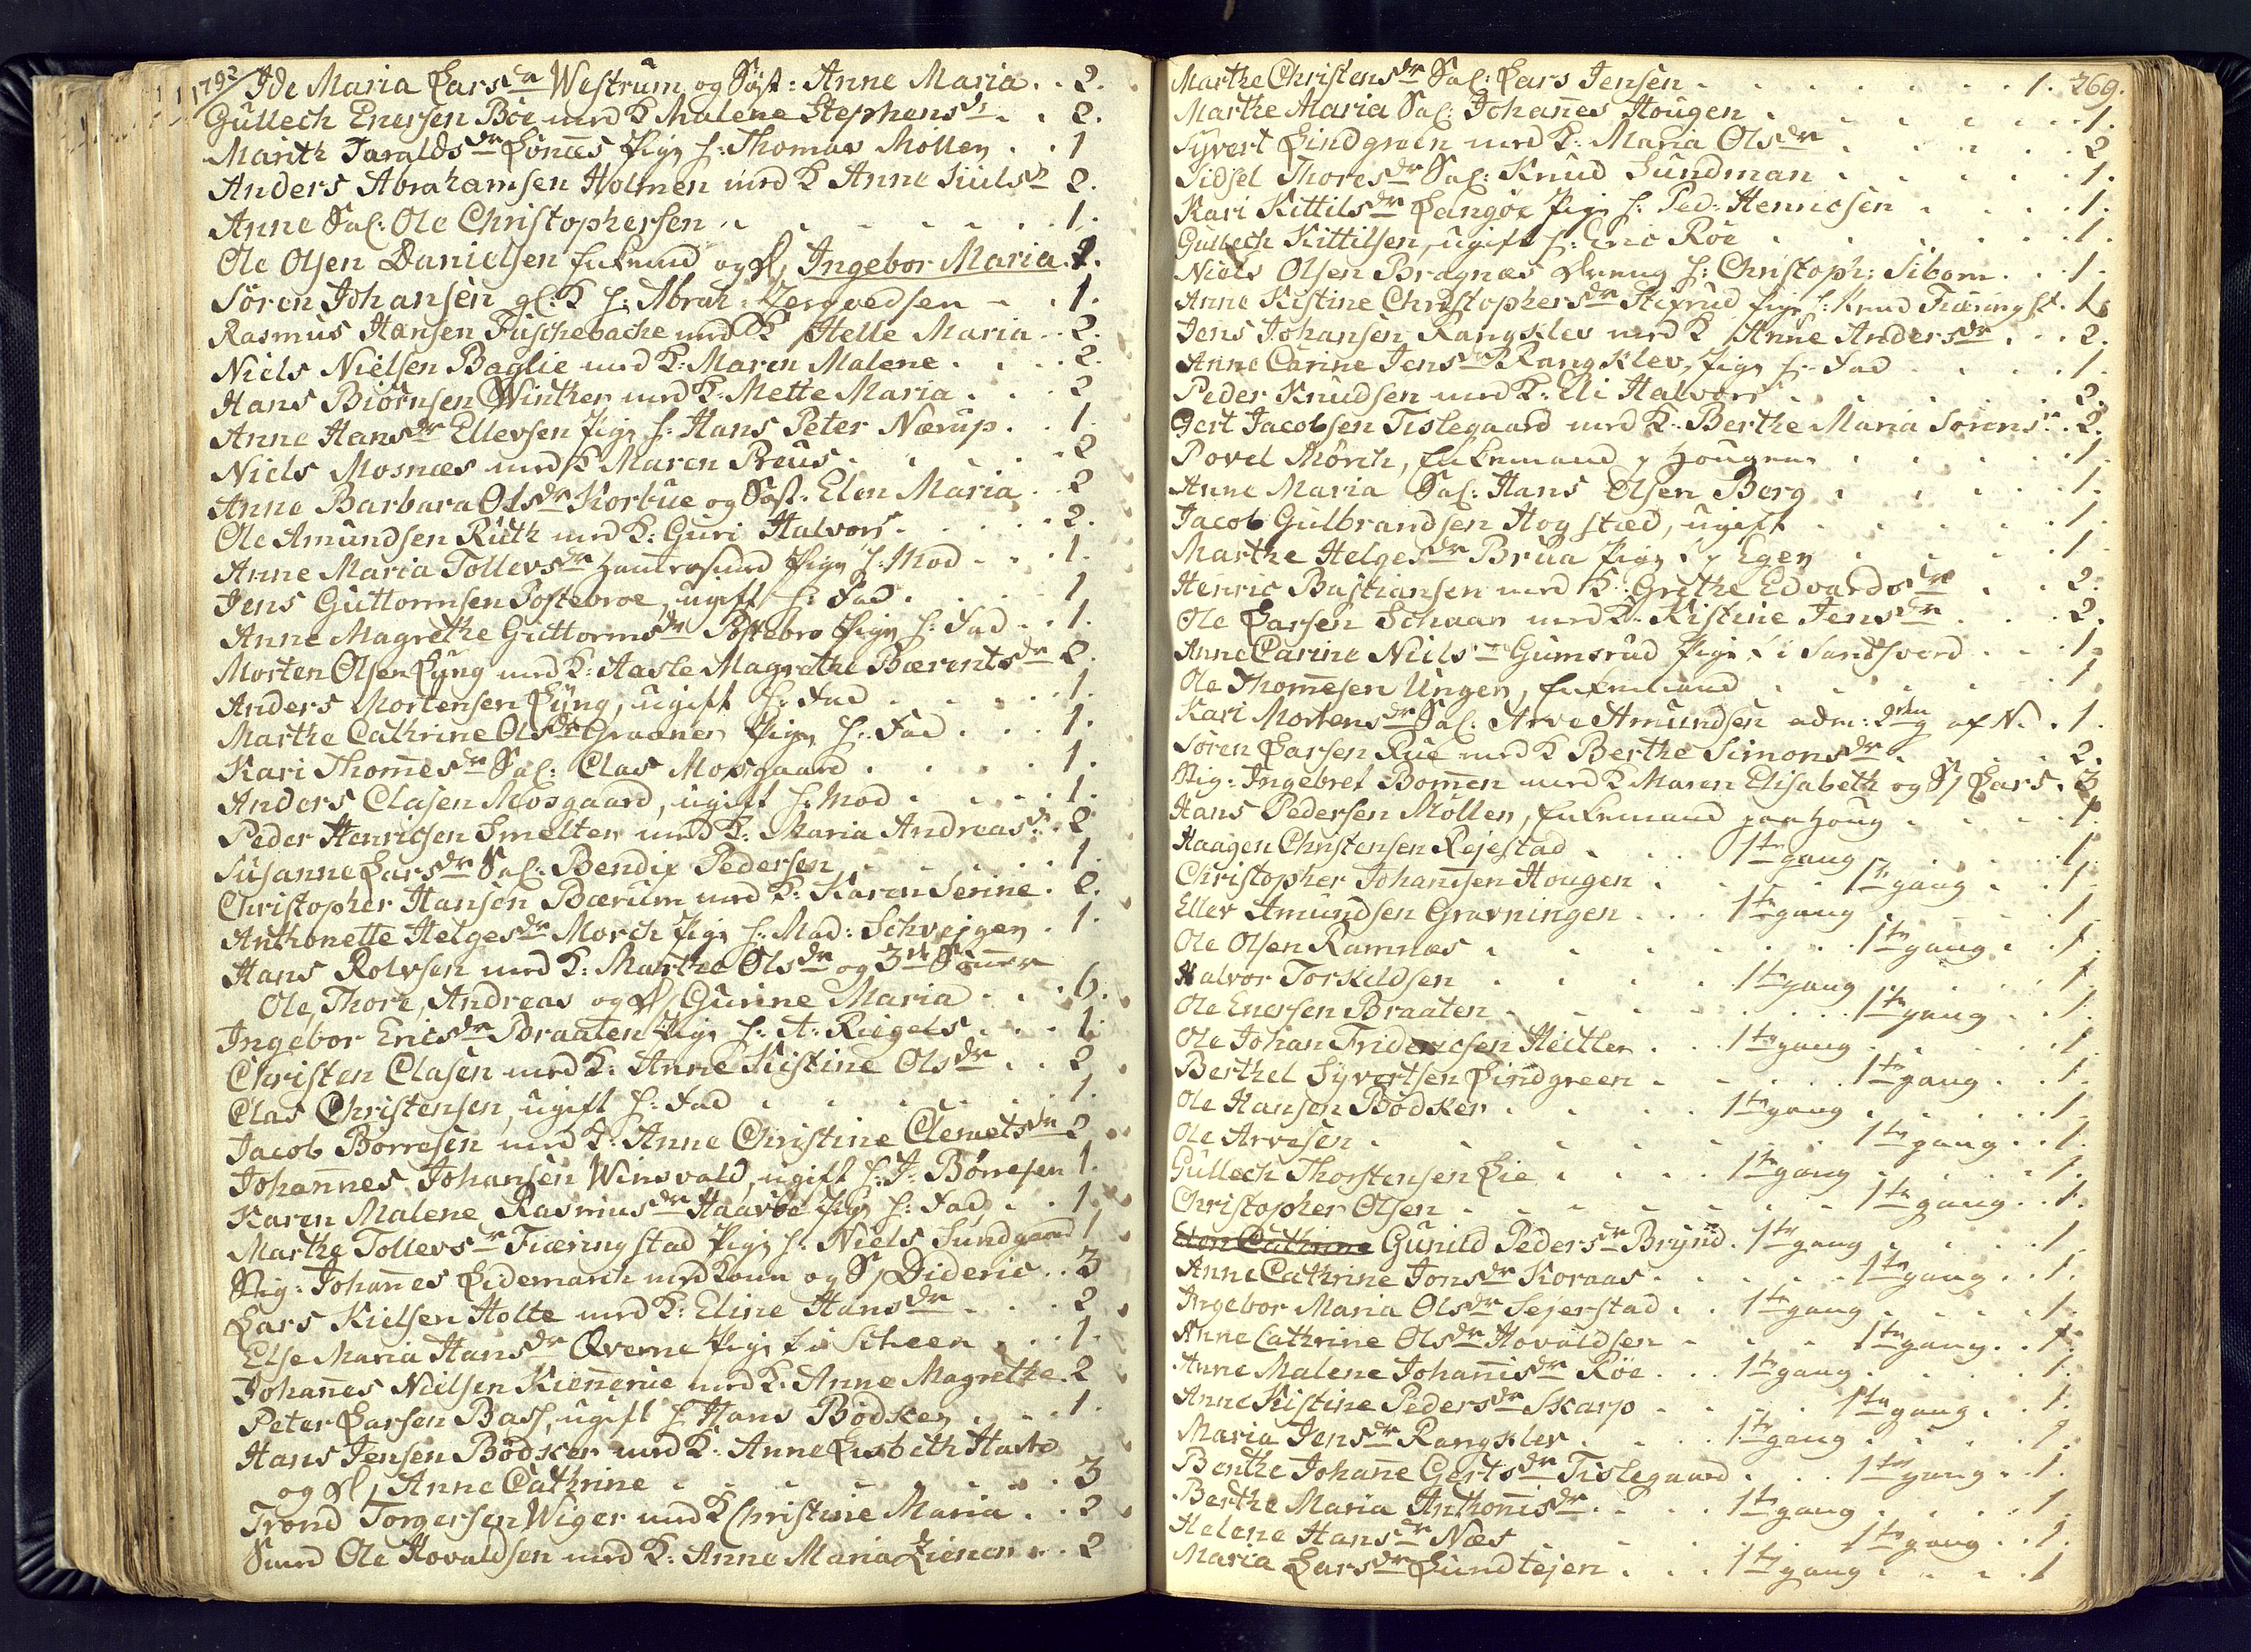 1792
Ide Maria Larsdr Westrum og Søst: Anne Maria . . 2.
Gullech Enersen Böe med K Malene Stephensdr . . 2.
Marith Taraldsdr Lönnes Pige h: Thomas Möller . . 1
Anders Abrahamsen Holmen med K Anne Juulsdr 2.
Anne Sal: Ole Christophersen . . 1.
Ole Olsen Danielsen Enkemd og D, Ingebor Maria. 2.
Sören Johansen gl: K h: Abrah: - . 1.
Rasmus Hansen Fuschebache med K Helle Maria . . 2.
Niels Nielsen Baglie med K: Maren Malene . . . . 2.
Hans Biörnsen Winther med K: Mette Maria . . . 2
Anne Hansdr Ellevsen Pige h: Hans Peter Nærup . . 1.
Niels Mosnæs med K Maren Preus . . . . . 2
Anne Barbara Olsdr Korbue og Søst: Elen Maria . . 2
Ole Amundsen Ruth med K: Guri Halvors . . . . . 2.
Anne Maria Tollevsdr Pige h: Mod . . . 1.
Jens Guttormsen Postebroe, ugift h: Fad . . . . 1
Anne Magrethe Guttormsdr Postebro Pige h: Fad . . 1.
Morten Olsen Lyng med K: Aaste Magrethe Bærentsdr 2.
Anders Mortensen Lyng, ugift h: Fad . . . . 1.
Marthe Cathrine Olsdr Graaner Pige h: Fad . . . 1.
Kari Thommesdr Sal: Clas Mosgaard . . . . . 1.
Anders Clasen Mosgaard, ugift h: Mod . . . . . 1.
Peder Henricsen Smelter med K: Maria Andreasdr . 2
Susanne Larsdr Sal: Bendix Pedersen . . . . . 1.
Christopher Hansen Bærum med K: Karen Serine . 2.
Anthonette Helgesdr Morch Pige h: Mad: Schvejgen . 1.
Hans Rolvsen med K: Marthe Olsdr og 3de Sönner
Ole, Thore, Andreas og D, Gurine Maria . . . 6.
Ingebor Ericsdr Braaten Pige h: A: Riegels . . . 1.
Christen Clasen med K: Anne Kistine Olsdr . . 2
Clas Christensen, ugift h: Fad . . . . . . 1.
Jacob Börresen med K: Anne Christine Clemetsdr 2
Johannes Johansen Winsvald, ugift h: J: Börresen 1.
Karen Malene Rasmusdr Haavöe Pige h: Fad . . 1.
Marthe Tollevsdr Fiæringstad Pige h: Niels Sundgaard 1
Sig: Johannes Lidemarch med Kone og S, Dideric . . 3
Lars Kielsen Holte med K: Eline Hansdr . . . 2
Else Maria Hansdr Qverne Pige h: i Scheen . . . 1.
Johannes Nielsen Kiennerie med K: Anne Magrethe . 2
Peter Larsen Bass, ugift h: Hans Bödker . . . 1.
Hans Jensen Bödker med K: Anne Lisbeth
og D, Anne Cathrine . . . . . . . . 3
Trond Torgersen Wiger med K Christine Maria . . 2
Smed Ole Hovaldsen med K: Anne Maria Ziener . . 2
269.
Marthe Christensdr Sal: Lars Jensen . . . . . . . 1.
Marthe Maria Sal: Johannes Hougen . . . . . . 1.
Syvert Lindgreen med K: Maria Olsdr . . . . . 2
Sidsel Thoresdr Sal: Knud Sundman . . . . . 1.
Kari Kittilsdr Langöe Pige h: Ped: Henricsen . . . . 1.
Gullech Kittilsen, ugift h: Eric Röe . . . . . . 1.
Niels Olsen Bragnæs Dreng h: Christoph: Sibom . . . 1.
Anne Kistine Christophersdr Stixrud Pige h: Knud Fiæringst. 1.
Jens Johansen Rangklev med K Anne Andersdr . . . 2.
Anne Carine Jensdr Rangklev, Pige h: Fad . . . . 1.
Peder Knudsen med K: Eli Halvors . . . . . . 2.
Gert Jacobsen Tislegaard med K: Berthe Maria Sorensdr . 2.
Povel Mörch, Enkemand Hougen . . . . . 1.
Anne Maria Sal: Hans Olsen Berg . . . . . 1.
Jacob Gulbrandsen Hogstæd, ugift . . . . . 1.
Marthe Helgesdr Brua Pige h: Egen . . . . 1.
Henric Bastiansen med K: Grethe Edvardsdr . . 2.
Ole Larsen Schaan med K: Kistine Jensdr . . . 2.
Anne Carine Nielsdr Gumsrud Pige h: i Sandsverd . . . 1.
Ole Thommesen Ungen, Enkemand . . . . . 1
Kari Mortensdr Sal: Arve Amundsen adm: 2den g af N. . 1.
Sören Larsen Rue med K Berthe Simonsdr . . . . 2.
Sig: Ingebret Bommen med K Maren Elisabeth og S, Lars . 3
Hans Pedersen Möller, Enkemand paa Houg . . . . 1.
Haagen Christensen Rejestad . . . 1te gang . . . . 1.
Christopher Johannsen Hougen . . . . 1te gang . . 1.
Ellev Amundsen Gravningen . . . 1te gang . . . . 1
Ole Olsen Ramnæs . . . . . . . 1te gang . . . 1.
Halvor Torkildsen . . . . . 1te gang . . . . 1
Ole Enersen Braaten . . . . . . . 1te gang . . 1.
Ole Johan Fridericsen Heitler . . . 1te gang . . . . 1
Berthel Syvertsen Lindgreen . . . . . 1te gang . . . 1.
Ole Hansen Bödker . . . . . 1te gang . . . . . 1
Ole Arvesen . . . . . . . . 1te gang . . . 1.
Gullech Thorstensen Lie . . . . 1te gang . . . . 1.
Christopher Olsen . . . . . . . 1te gang . . . 1.
Elen Cathrine Gunild Pedersdr Brynd . 1te gang . . . . 1
Anne Cathrine Jonsdr Koraas . . . . . 1te gang . . 1.
Ingebor Maria Olsdr Sejerstad . . 1te gang . . . . 1.
Anne Cathrine Olsdr Hovaldsen . . . . 1te gang . . 1.
Anne Malene Johannisdr Röe . . . 1te gang . . . . 1.
Anne Kistine Pedersdr Skarp . . . . 1te gang . . . 1.
Maria Jensdr Rangklev . . . . 1te gang . . . . 1.
Benthe Johanne Gertsdr Tislegaard . . . 1te gang . . 1.
Berthe Maria Anthonisdr . . . . 1te gang . . . . 1
Helene Hansdr Næs . . . . . . 1te gang . . . 1.
Maria Larsdr Lundtejen . . . 1te gang . . . . 1